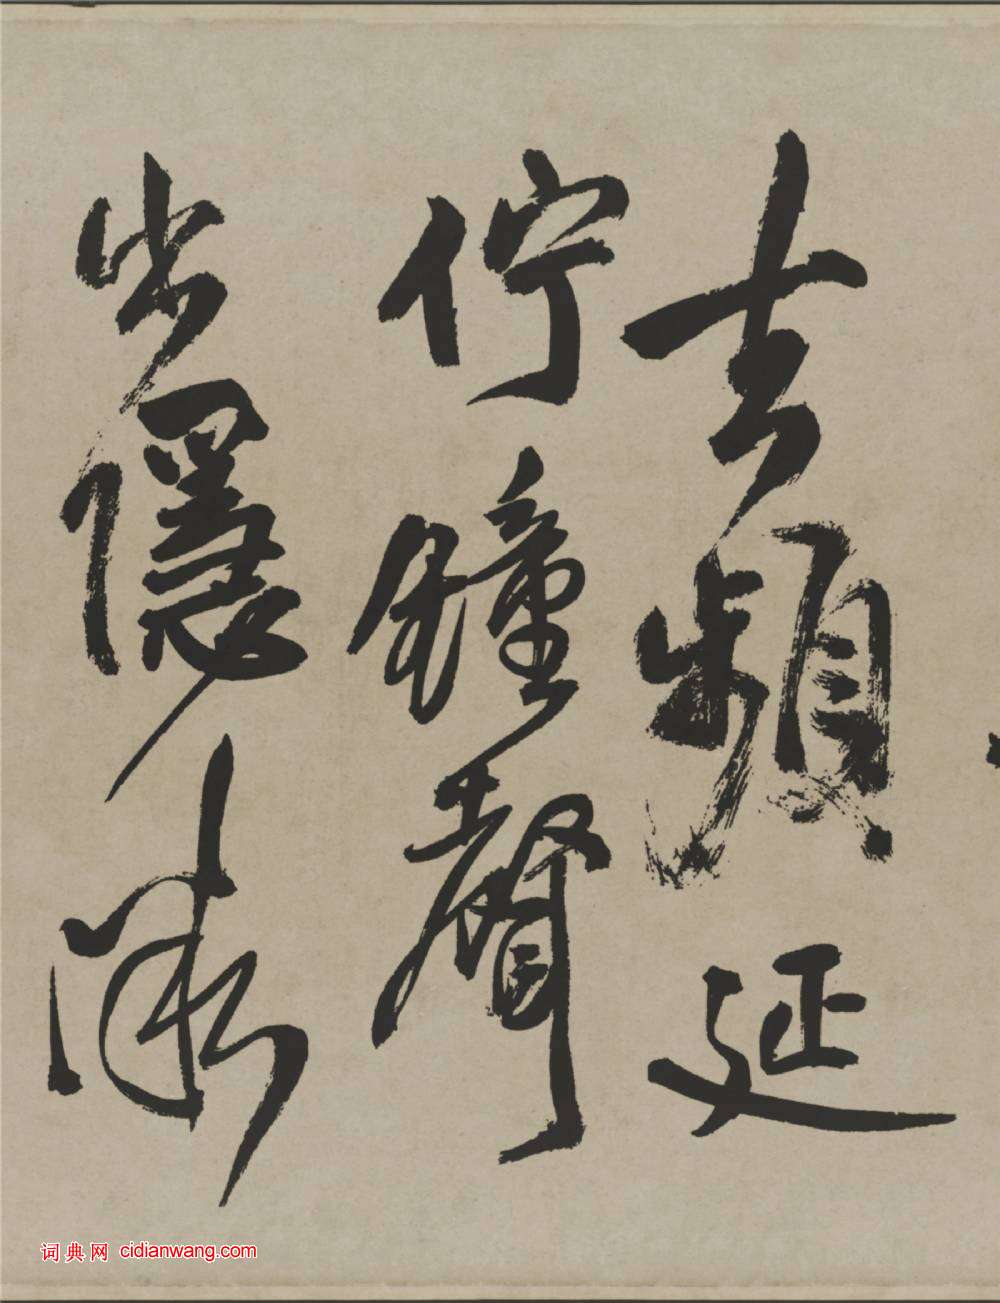 去頻延
佇鐘聲
出隱
词典网 cidianwang.com